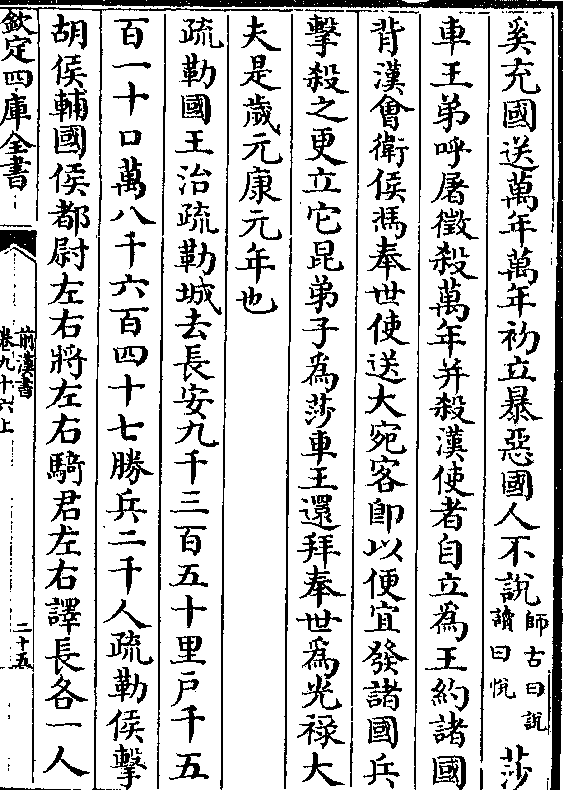 奚充國送萬年萬年初立暴惡國人不說師古曰說讀曰悅莎
車王弟呼屠徵殺萬年并殺漢使者自立為王約諸國
背漢會衛侯馮奉世使送大宛客即以便宜發諸國兵
擊殺之更立它昆弟子為莎車王還拜奉世為光祿大
夫是歲元康元年也
疏勒國王治疏勒城去長安九千三百五十里戶千五
百一十口萬八千六百四十七勝兵二千人疏勒侯擊
胡侯輔國侯都尉左右將左右騎君左右譯長各一人
欽定四庫全書
前漢書
卷九十六上
二十五